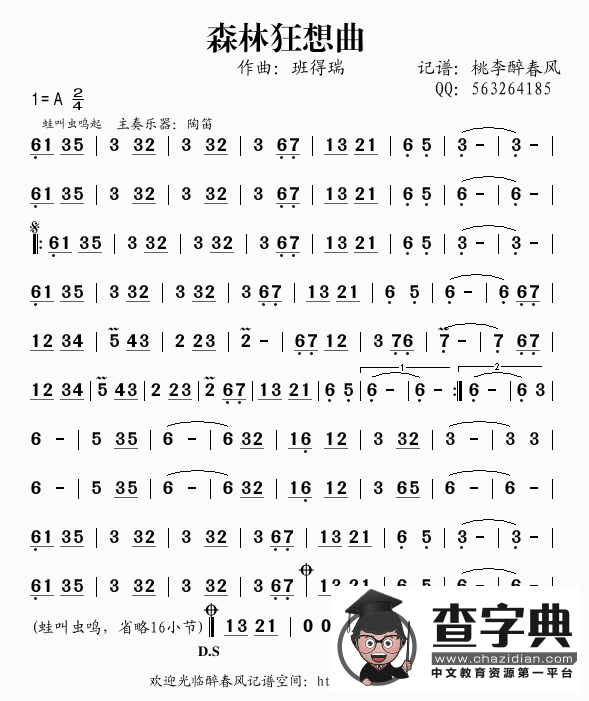 森林狂想曲
作曲：班得瑞 记谱：桃李醉春风
QQ: 563264185
1=A 2/4
蛙叫虫鸣起 主奏乐器：陶笛
61 35 | 3 32 | 3 32 | 3 67 | 13 21 | 6 5 | 3 - | 3 - |
61 35 | 3 32 | 3 32 | 3 67 | 13 21 | 6 5 | 6 - | 6 - |
𝄋
‖: 61 35 | 3 32 | 3 32 | 3 67 | 13 21 | 6 5 | 3 - | 3 - |
61 35 | 3 32 | 3 32 | 3 67 | 13 21 | 6 5 | 6 - | 6 67 |
12 34 | 5 43 | 2 23 | 2 - | 67 12 | 3 76 | 7 - | 7 67 |
1 2
12 34 | 5 43 | 2 23 | 2 67 | 13 21 | 6 5 | 6 - | 6 - :‖ 6 - | 6 3 |
6 - | 5 35 | 6 - | 6 32 | 16 12 | 3 32 | 3 - | 3 3 |
6 - | 5 35 | 6 - | 6 32 | 16 12 | 3 65 | 6 - | 6 - |
61 35 | 3 32 | 3 32 | 3 67 | 13 21 | 6 5 | 3 - | 3 - |
61 35 | 3 32 | 3 32 | 3 67
(蛙叫虫鸣，省略16小节) 13 21 | 0 0
D.S
欢迎光临醉春风记谱空间：ht
查字典
www.chazidian.com
中文教育资源第一平台